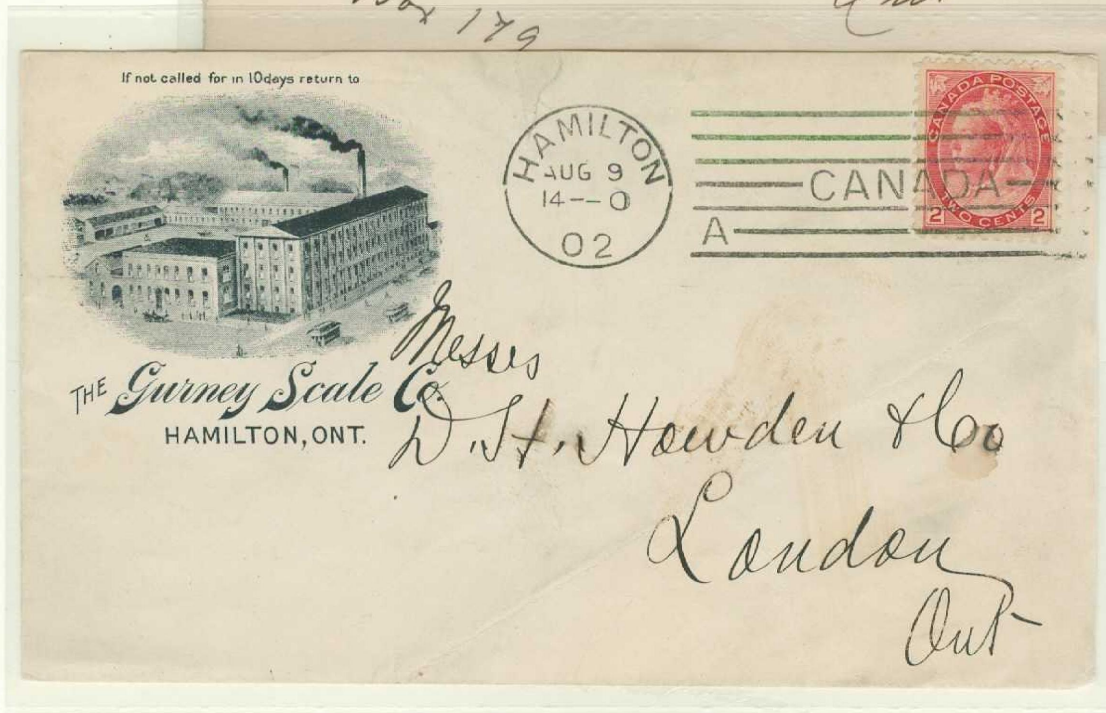 Box 179
If not called for in 10 days return to
THE Gurney Scale Co.
HAMILTON, ONT.
HAMILTON
AUG 9
14--0
02
CANADA
A
CANADA POSTAGE
2 TWO CENTS 2
Messrs
D. H. Howden & Co
London
Ont